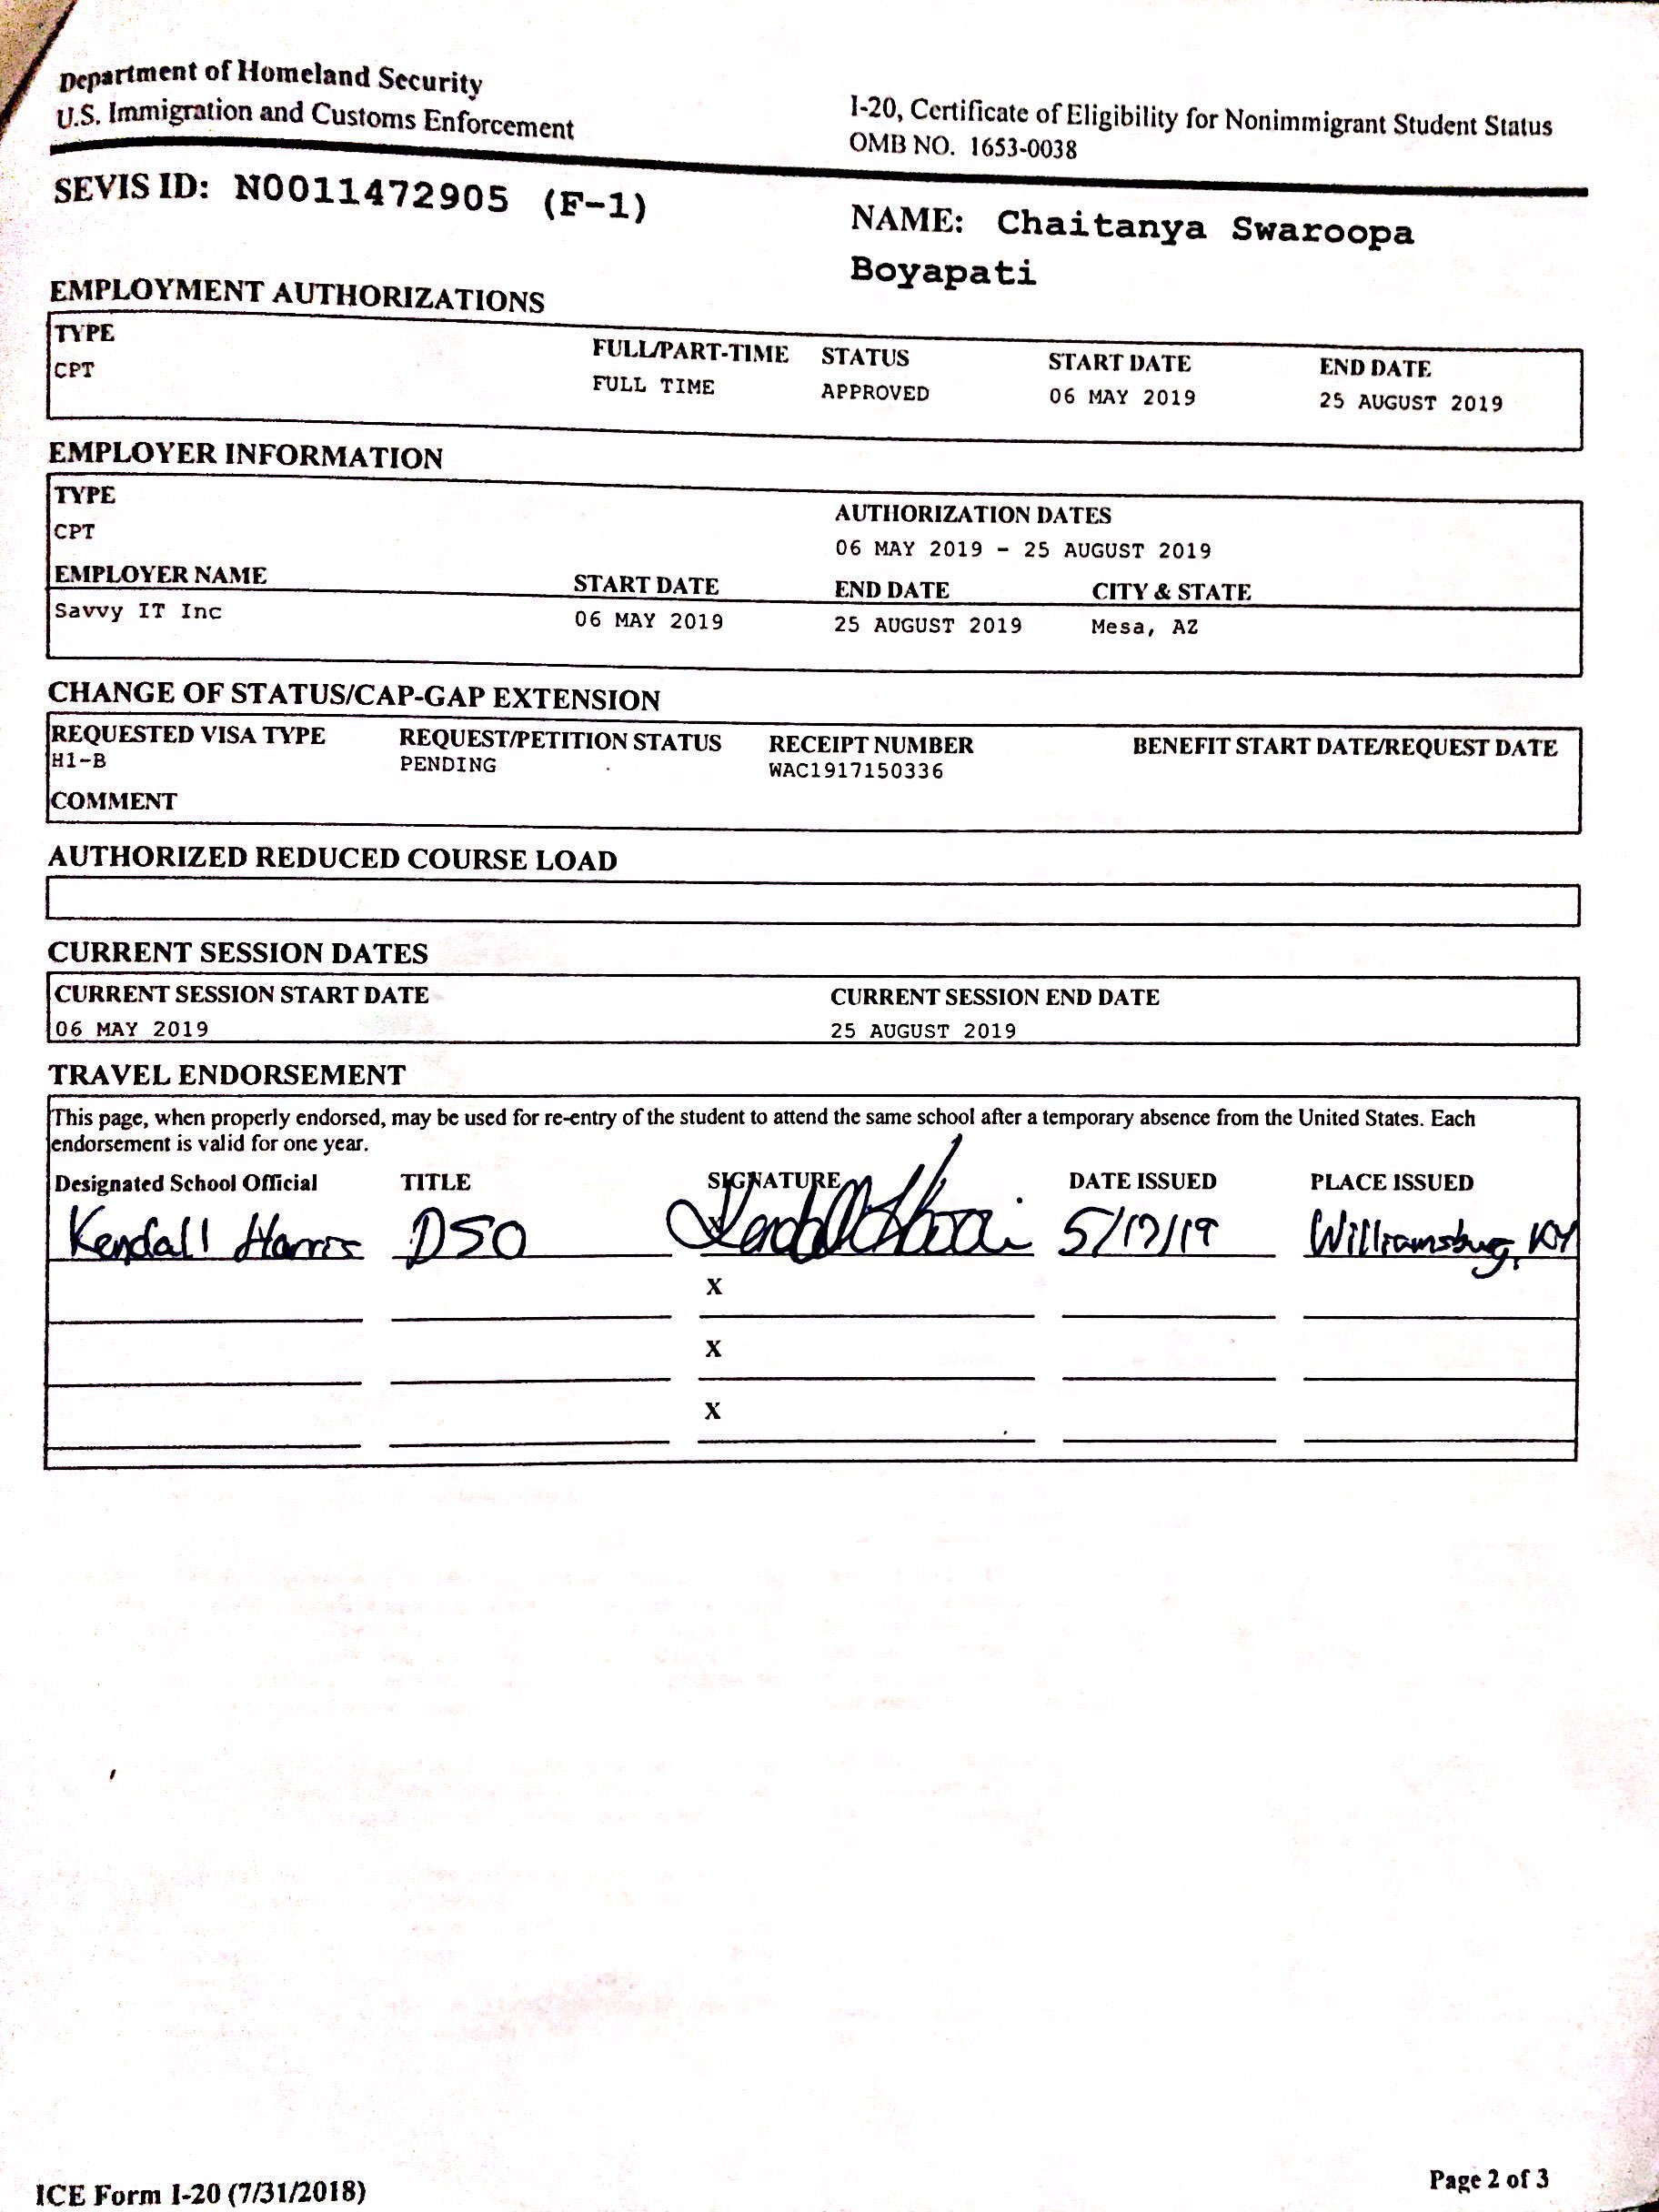 Department of Homeland Security
U.S. Immigration and Customs Enforcement
I-20, Certificate of Eligibility for Nonimmigrant Student Status
OMB NO. 1653-0038
SEVIS ID: N0011472905 (F-1)
NAME: Chaitanya Swaroopa
Boyapati
EMPLOYMENT AUTHORIZATIONS
TYPE FULL/PART-TIME STATUS START DATE END DATE
CPT FULL TIME APPROVED 06 MAY 2019 25 AUGUST 2019
EMPLOYER INFORMATION
TYPE AUTHORIZATION DATES
CPT 06 MAY 2019 - 25 AUGUST 2019
EMPLOYER NAME START DATE END DATE CITY & STATE
Savvy IT Inc 06 MAY 2019 25 AUGUST 2019 Mesa, AZ
CHANGE OF STATUS/CAP-GAP EXTENSION
REQUESTED VISA TYPE REQUEST/PETITION STATUS RECEIPT NUMBER BENEFIT START DATE/REQUEST DATE
H1-B PENDING WAC1917150336
COMMENT
AUTHORIZED REDUCED COURSE LOAD
CURRENT SESSION DATES
CURRENT SESSION START DATE CURRENT SESSION END DATE
06 MAY 2019 25 AUGUST 2019
TRAVEL ENDORSEMENT
This page, when properly endorsed, may be used for re-entry of the student to attend the same school after a temporary absence from the United States. Each
endorsement is valid for one year.
Designated School Official TITLE SIGNATURE DATE ISSUED PLACE ISSUED
Kendall Harris DSO X Kendall Harris 5/17/19 Williamsburg, KY
X
X
X
ICE Form I-20 (7/31/2018)
Page 2 of 3